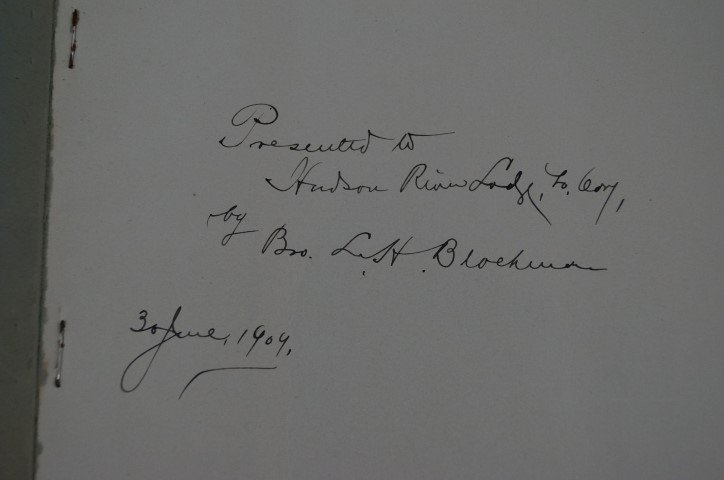 Presented to
Hudson River Lodge,
by Bro. L. H. Blochman
30 June, 1909.